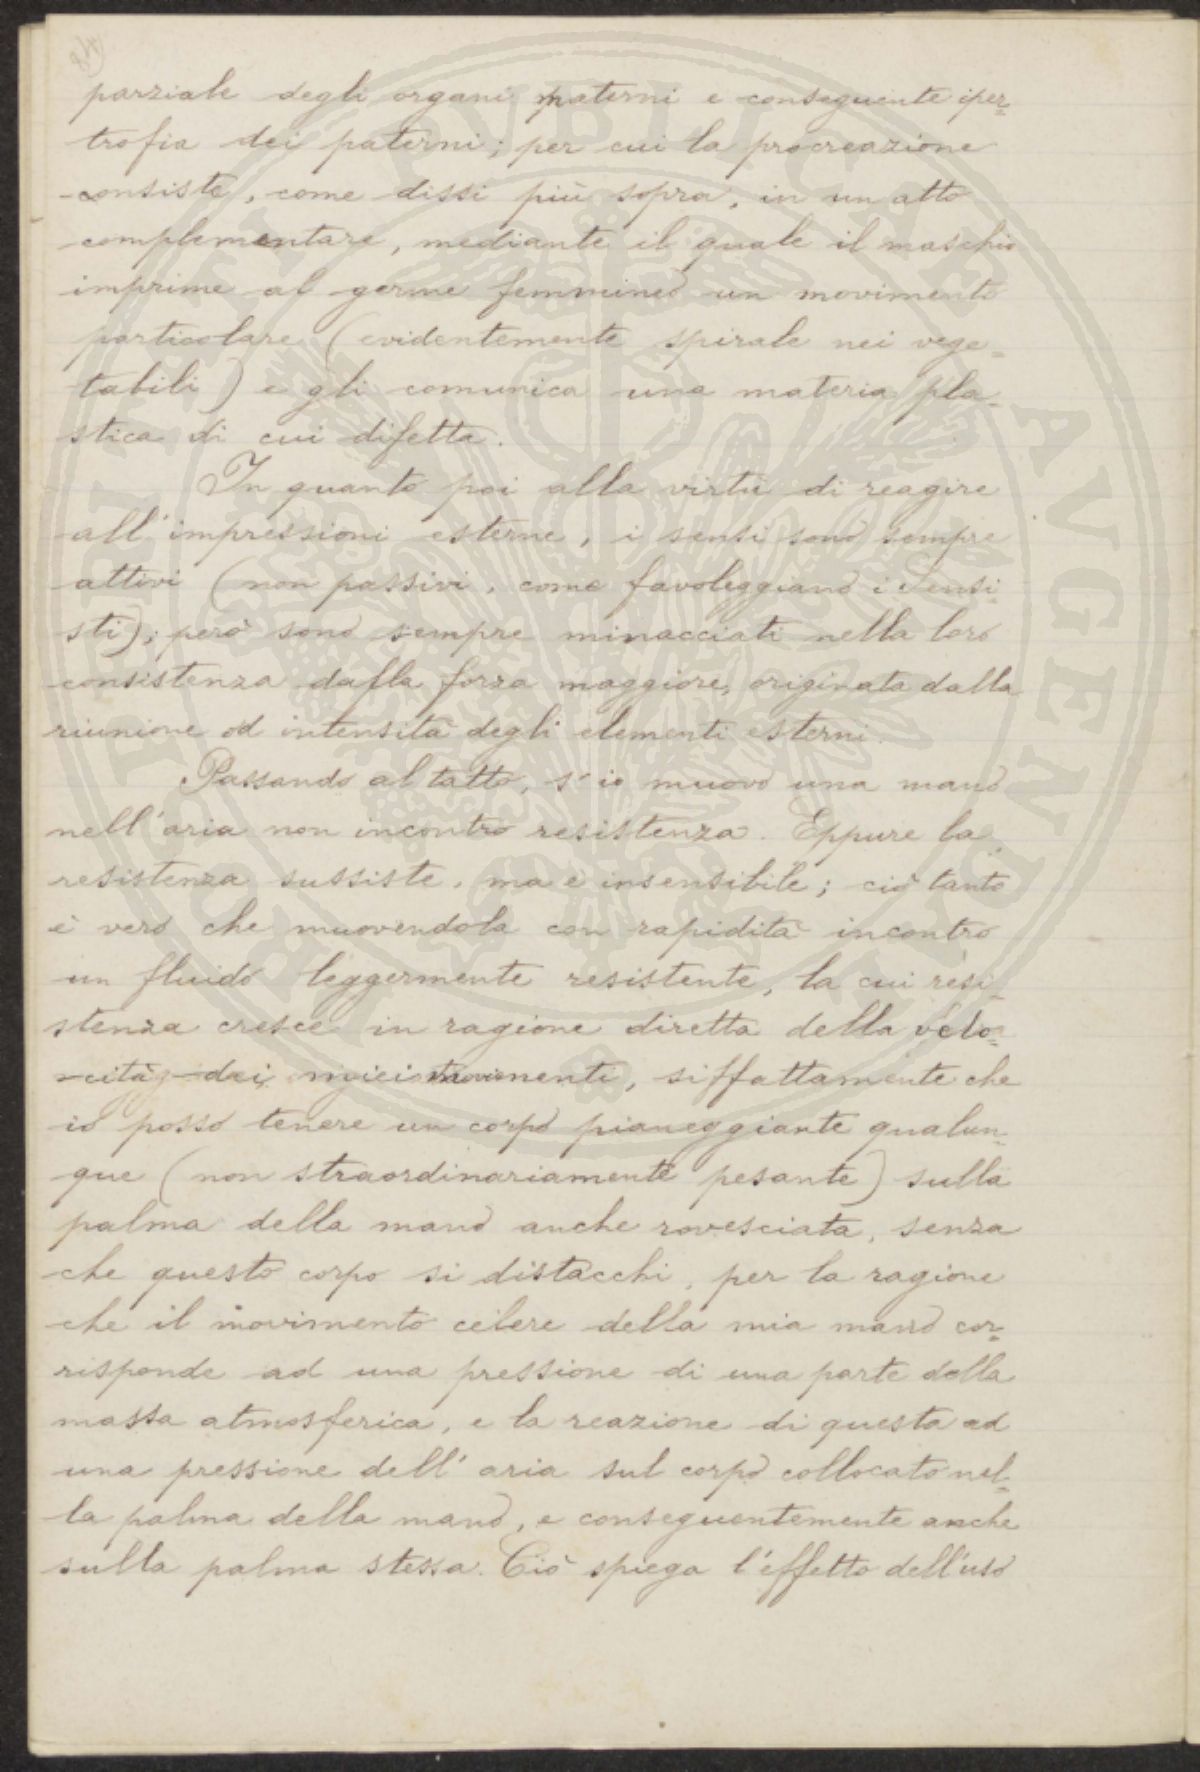 84
parziale degli organi materni e conseguente iper-
trofia dei paterni; per cui la procreazione
consiste, come dissi più sopra, in un atto
complementare, mediante il quale il maschio
imprime al germe femmineo un movimento
particolare (evidentemente spirale nei vege-
tabili) e gli comunica una materia pla-
stica di cui difetta.
In quanto poi alla virtù di reagire
all'impressioni esterne, i sensi sono sempre
attivi (non passivi, come favoleggiano i Sensi-
sti); però sono sempre minacciati nella loro
consistenza dalla forza maggiore, originata dalla
riunione od intensità degli elementi esterni.
Passando al tatto, s'io muovo una mano
nell'aria non incontro resistenza. Eppure la
resistenza sussiste, ma è insensibile; ciò tanto
è vero che muovendola con rapidità incontro
un fluido leggermente resistente, la cui resi-
stenza cresce in ragione diretta della velo-
cità dei miei movimenti, siffattamente che
io posso tenere un corpo pianeggiante qualun-
que (non straordinariamente pesante) sulla
palma della mano anche rovesciata, senza
che questo corpo si distacchi, per la ragione
che il movimento celere della mia mano cor-
risponde ad una pressione di una parte della
massa atmosferica, e la reazione di questa ad
una pressione dell'aria sul corpo collocato nel-
la palma della mano, e conseguentemente anche
sulla palma stessa. Ciò spiega l'effetto dell'uso